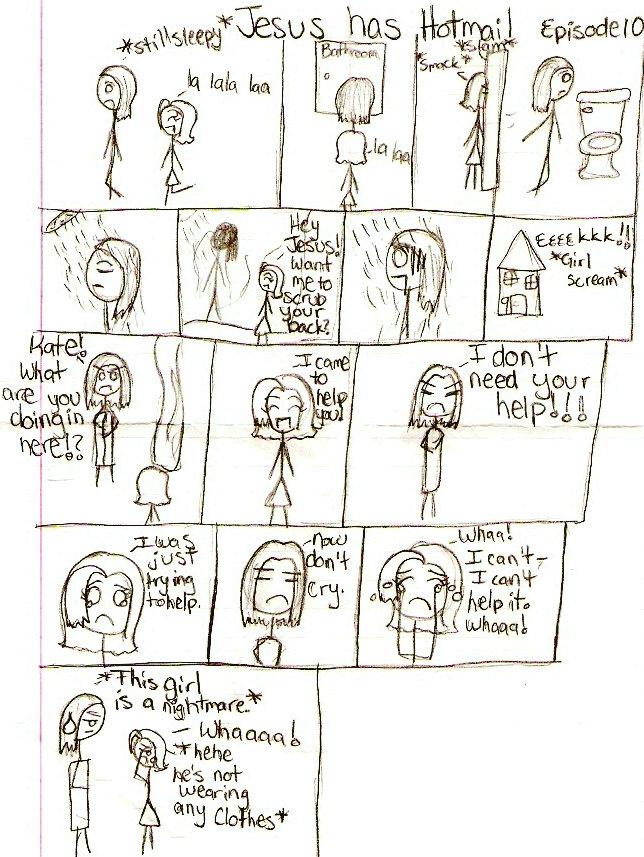 Jesus has Hotmail Episode 10
*still sleepy*
la lala laa
Bathroom
la laa
*Smack*
*slam*
Hey
Jesus!
Want
me to
scrub
your
back?
EEEEkkk!!
*Girl
scream*
Kate!
What
are you
doing in
here!?
I came
to
help
you!
I don't
need your
help!!!
I was
just
trying
to help.
Now
don't
cry.
Whaa!
I can't-
I can't
help it.
Whaaa!
*This girl
is a nightmare.*
Whaaaa!
*hehe
he's not
wearing
any clothes*